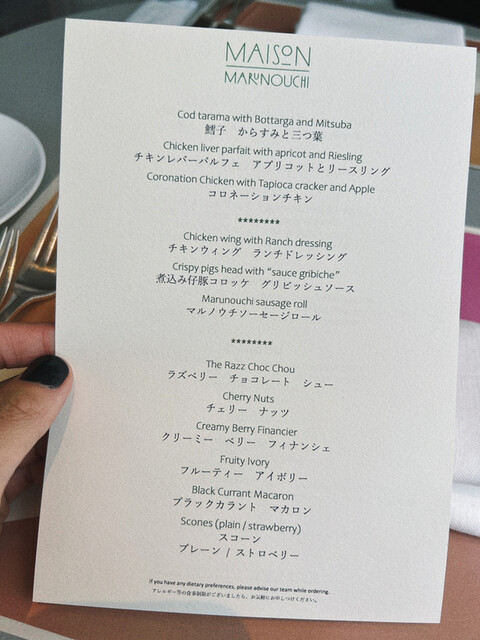 MAISON
MARUNOUCHI
Cod tarama with Bottarga and Mitsuba
鱈子　からすみと三つ葉
Chicken liver parfait with apricot and Riesling
チキンレバーパルフェ　アプリコットとリースリング
Coronation Chicken with Tapioca cracker and Apple
コロネーションチキン
********
Chicken wing with Ranch dressing
チキンウィング　ランチドレッシング
Crispy pigs head with “sauce gribiche”
煮込み仔豚コロッケ　グリビッシュソース
Marunouchi sausage roll
マルノウチソーセージロール
********
The Razz Choc Chou
ラズベリー　チョコレート　シュー
Cherry Nuts
チェリー　ナッツ
Creamy Berry Financier
クリーミー　ベリー　フィナンシェ
Fruity Ivory
フルーティー　アイボリー
Black Currant Macaron
ブラックカラント　マカロン
Scones (plain / strawberry)
スコーン
プレーン / ストロベリー
If you have any dietary preferences, please advise our team while ordering.
アレルギー等の食事制限がございましたら、お気軽にお申しつけください。